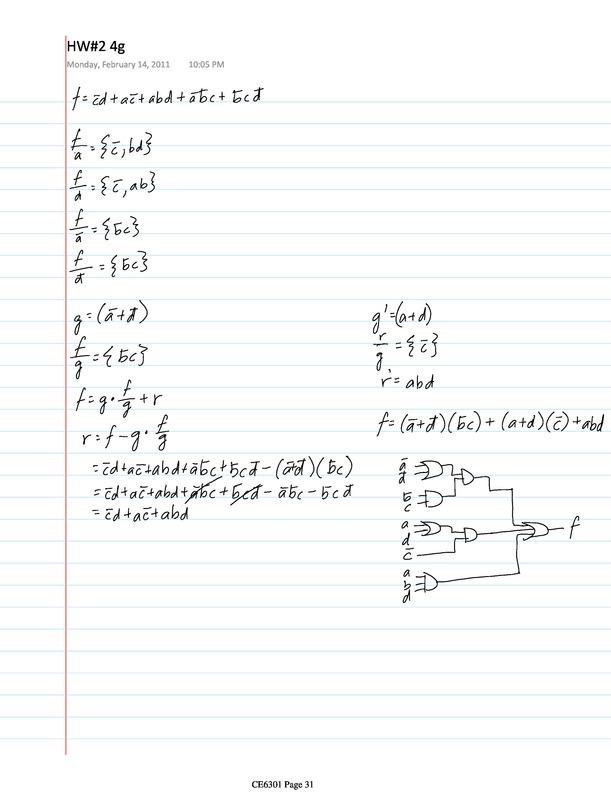 HW#2 4g
Monday, February 14, 2011 10:05 PM
f = c̄d + ac̄ + abd + āb̄c + b̄cd̄
f/a = {c̄, bd}
f/d = {c̄, ab}
f/ā = {b̄c}
f/d̄ = {b̄c}
g = (ā+d̄)
f/g = {b̄c}
f = g · f/g + r
r = f - g · f/g
= c̄d + ac̄ + abd + āb̄c + b̄cd̄ - (ā+d̄)(b̄c)
= c̄d + ac̄ + abd + āb̄c + b̄cd̄ - āb̄c - b̄cd̄
= c̄d + ac̄ + abd
g' = (a+d)
r/g' = {c̄}
r' = abd
f = (ā+d̄)(b̄c) + (a+d)(c̄) + abd
ā
d̄
b̄
c
f
a
d
c̄
a
b
d
CE6301 Page 31